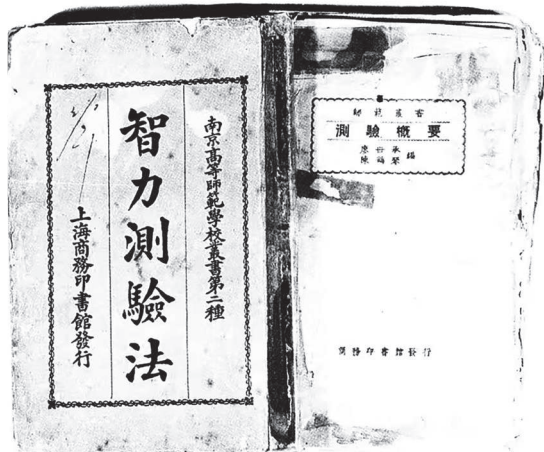 南京高等師範學校叢書第二種
智力測驗法
上海商務印書館發行
師範叢書
測驗概要
廖世承
陳鶴琴
編
商務印書館發行